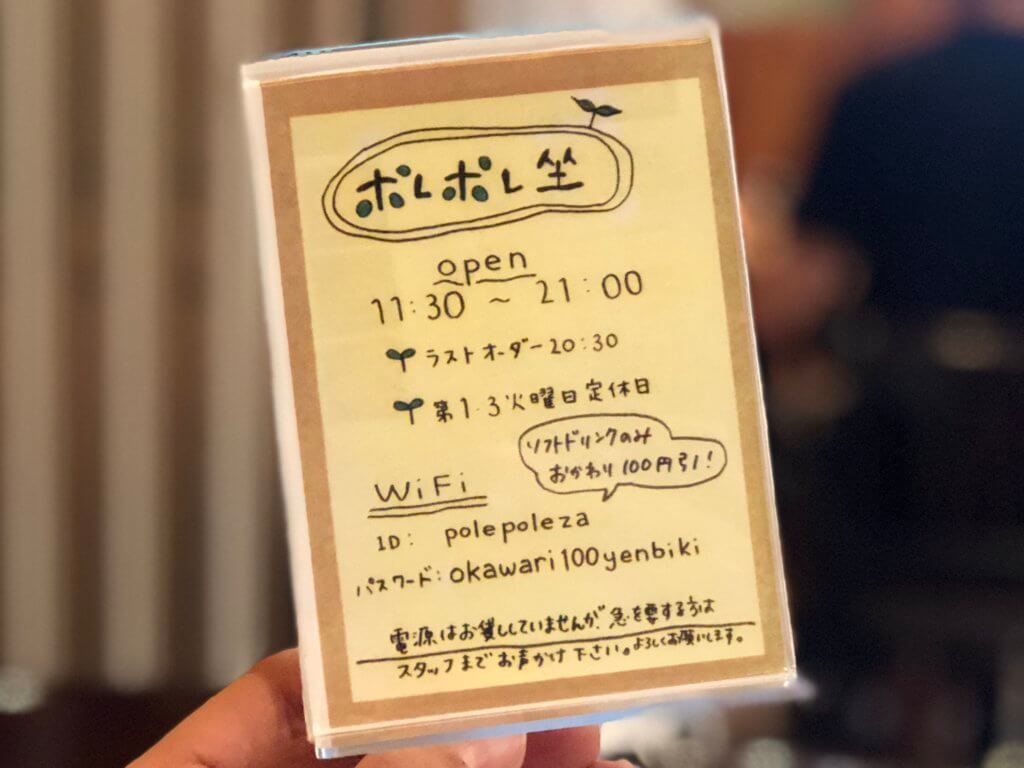 ポレポレ坐
open
11:30 ~ 21:00
ラストオーダー 20:30
第1.3火曜日定休日
ソフトドリンクのみ
おかわり100円引!
WiFi
ID: polepoleza
パスワード: okawari100yenbiki
電源はお貸ししていませんが、急を要する方は
スタッフまでお声かけ下さい。よろしくお願いします。